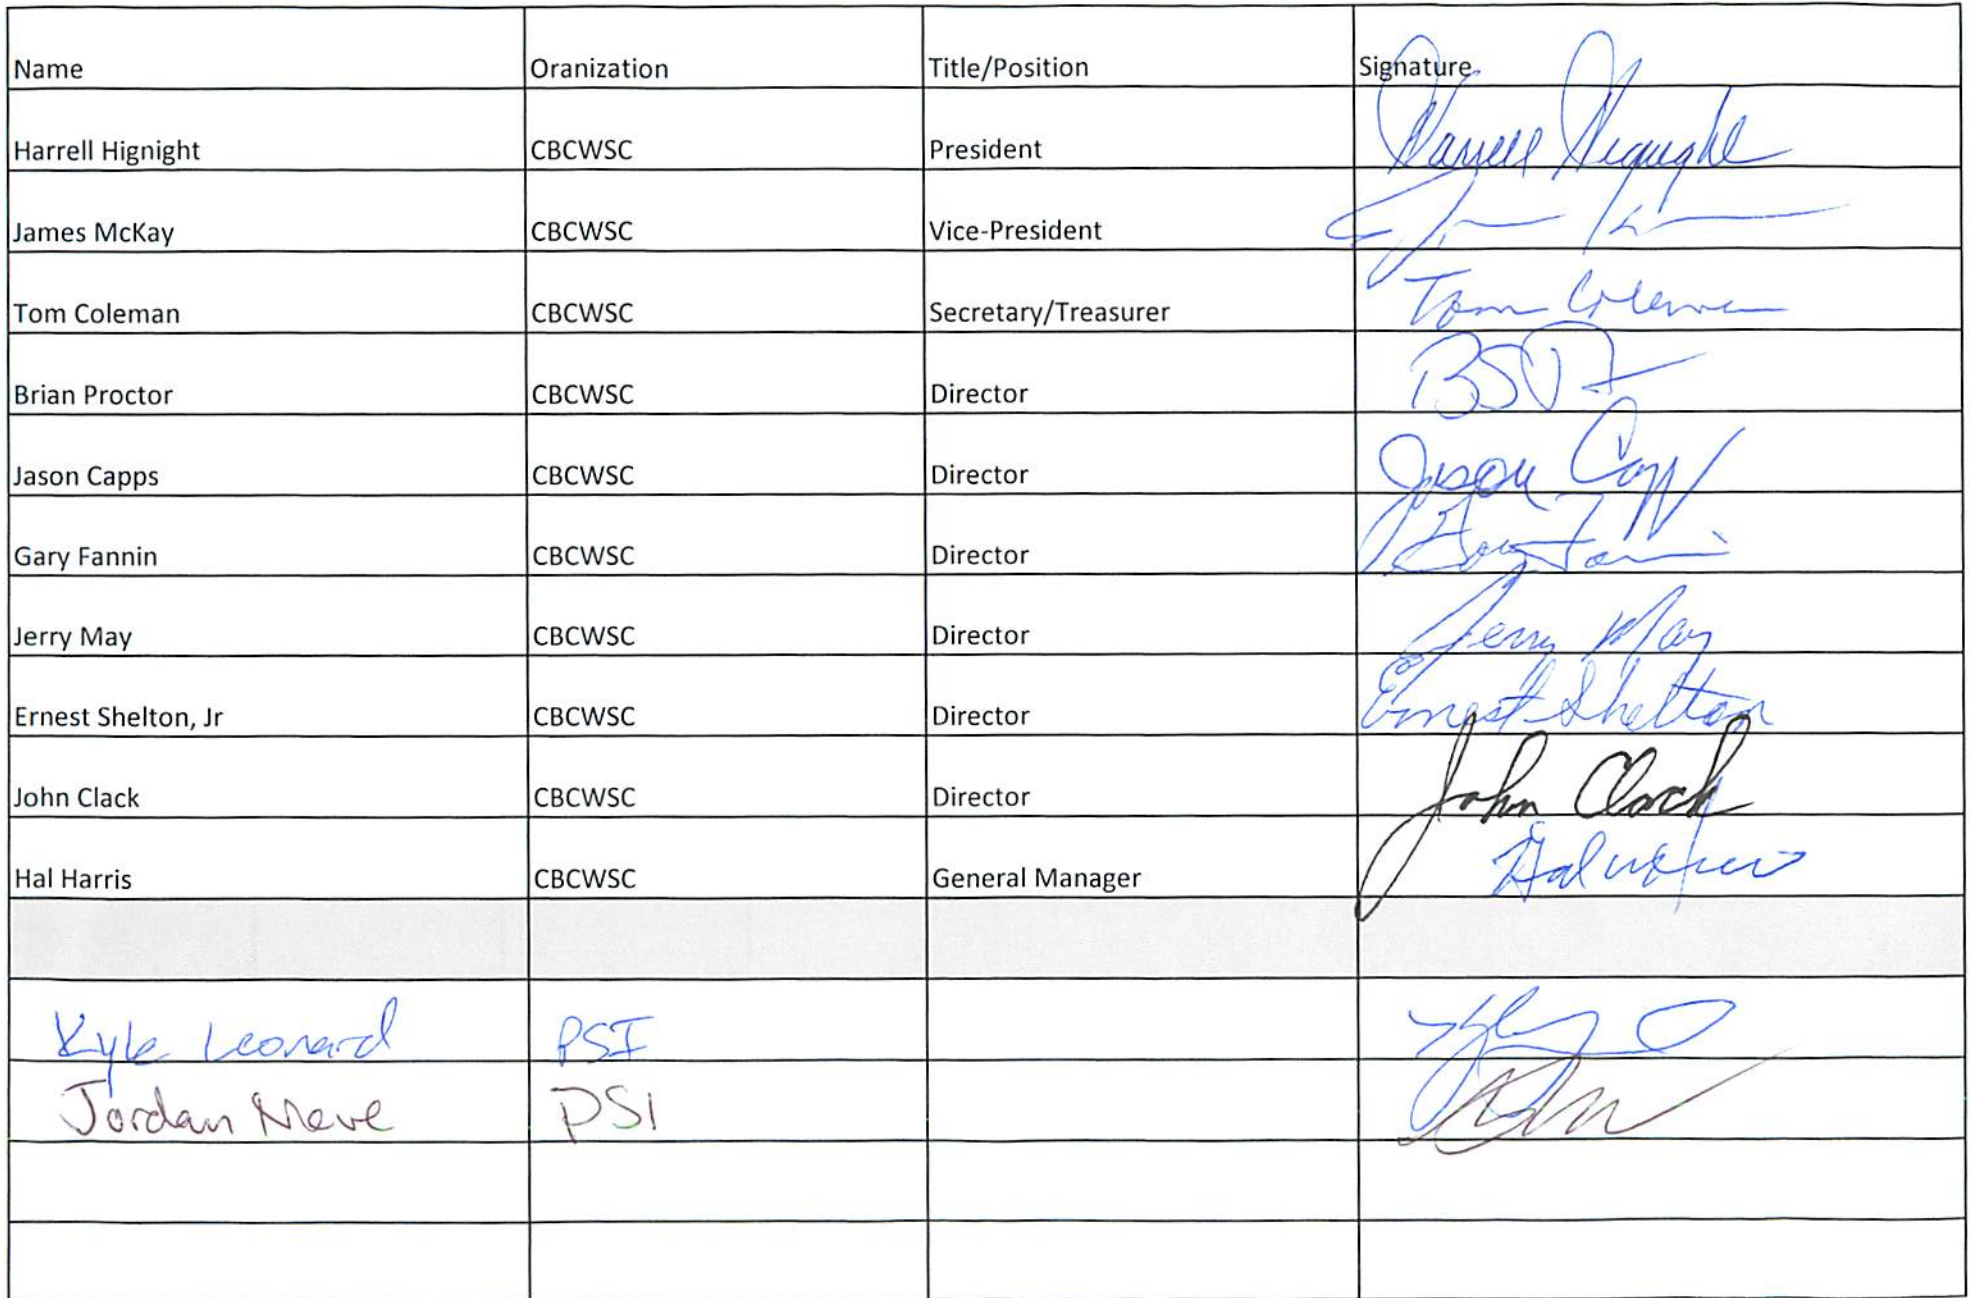 Name Oranization Title/Position Signature
Harrell Hignight CBCWSC President Harrell Hignight
James McKay CBCWSC Vice-President
Tom Coleman CBCWSC Secretary/Treasurer Tom Coleman
Brian Proctor CBCWSC Director
Jason Capps CBCWSC Director Jason Capp
Gary Fannin CBCWSC Director Gary Fannin
Jerry May CBCWSC Director Jerry May
Ernest Shelton, Jr CBCWSC Director Ernest Shelton
John Clack CBCWSC Director John Clack
Hal Harris CBCWSC General Manager Hal
Kyle Leonard PSI
Jordan Neve PSI